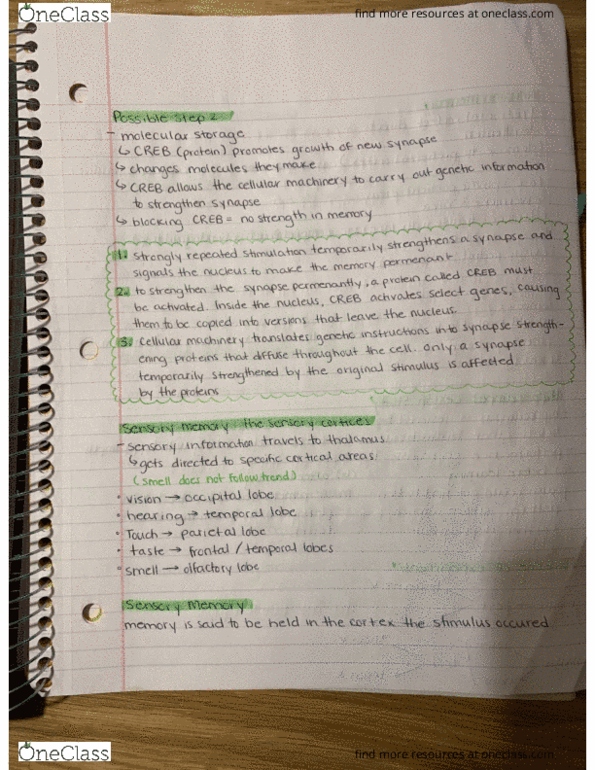 OneClass
find more resources at oneclass.com
Possible step 2
- molecular storage
↳ CREB (protein) promotes growth of new synapse
↳ changes molecules they make
↳ CREB allows the cellular machinery to carry out genetic information
to strengthen synapse
↳ blocking CREB = no strength in memory
1. Strongly repeated stimulation temporarily strengthens a synapse and
signals the nucleus to make the memory permenant.
2. to strengthen the synapse permenantly, a protein called CREB must
be activated. Inside the nucleus, CREB activates select genes, causing
them to be copied into versions that leave the nucleus.
3. Cellular machinery translates genetic instructions into synapse strength-
ening proteins that diffuse throughout the cell. Only a synapse
temporarily strengthened by the original stimulus is affected
by the proteins
Sensory memory: the sensory cortices
- sensory information travels to thalamus
↳ gets directed to specific cortical areas
(smell does not follow trend)
• vision → occipital lobe
• hearing → temporal lobe
• Touch → parietal lobe
• taste → frontal / temporal lobes
• smell → olfactory lobe
Sensory Memory
memory is said to be held in the cortex the stimulus occured
OneClass
find more resources at oneclass.com